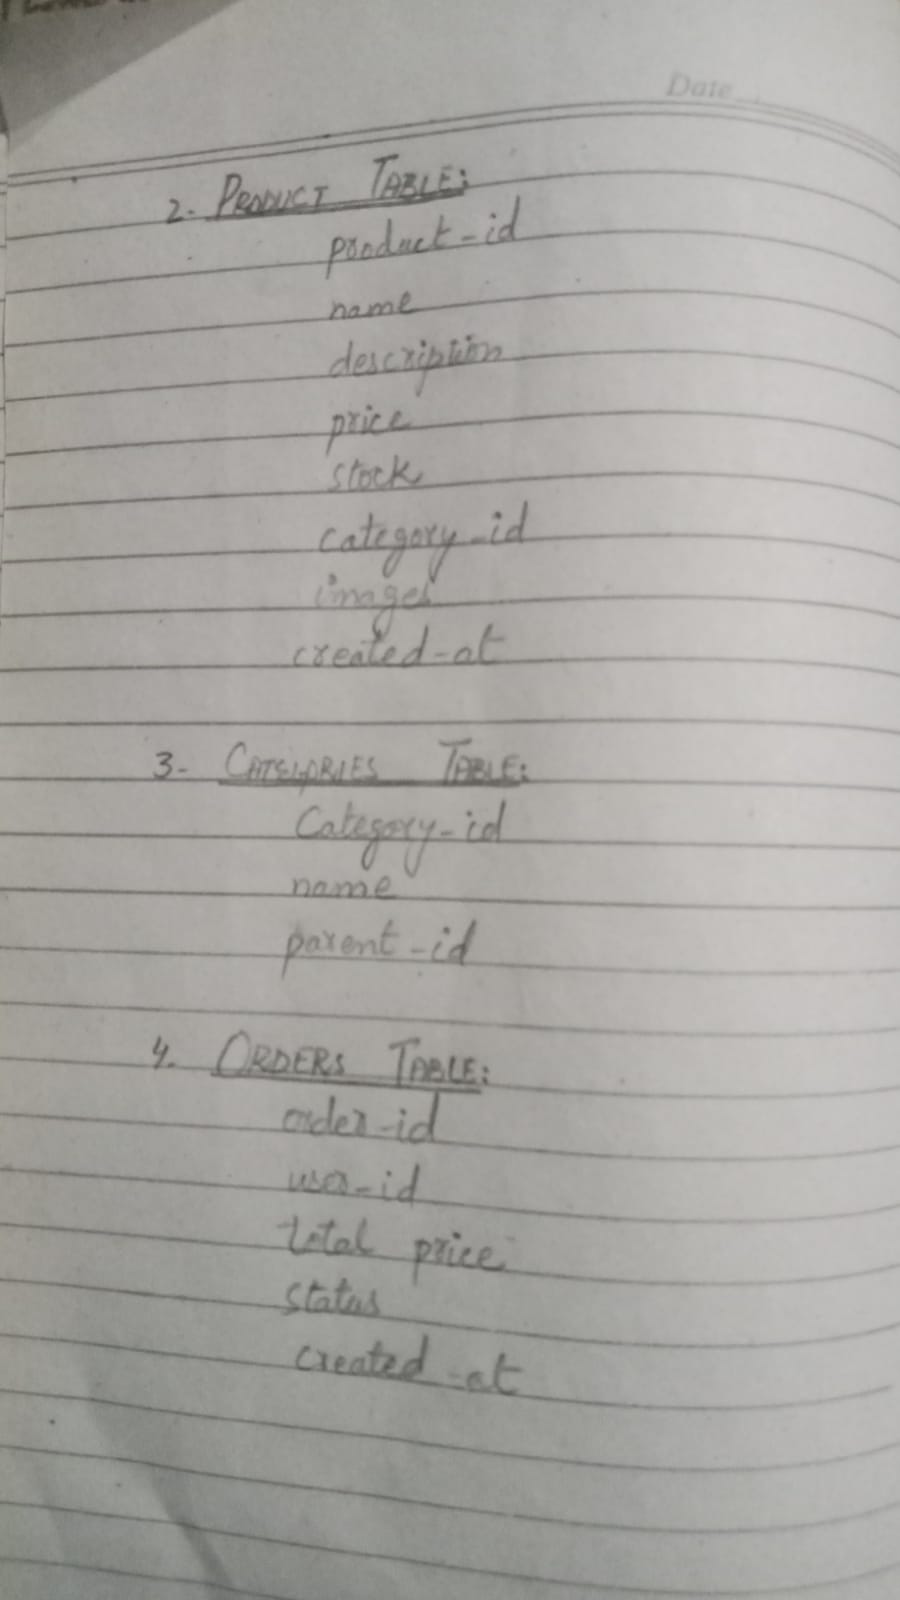 Date
2. PRODUCT TABLE:
product-id
name
description
price
stock
category-id
images
created-at
3- CATEGORIES TABLE:
Category-id
name
parent-id
4. ORDERS TABLE:
order-id
user-id
total price
status
created-at